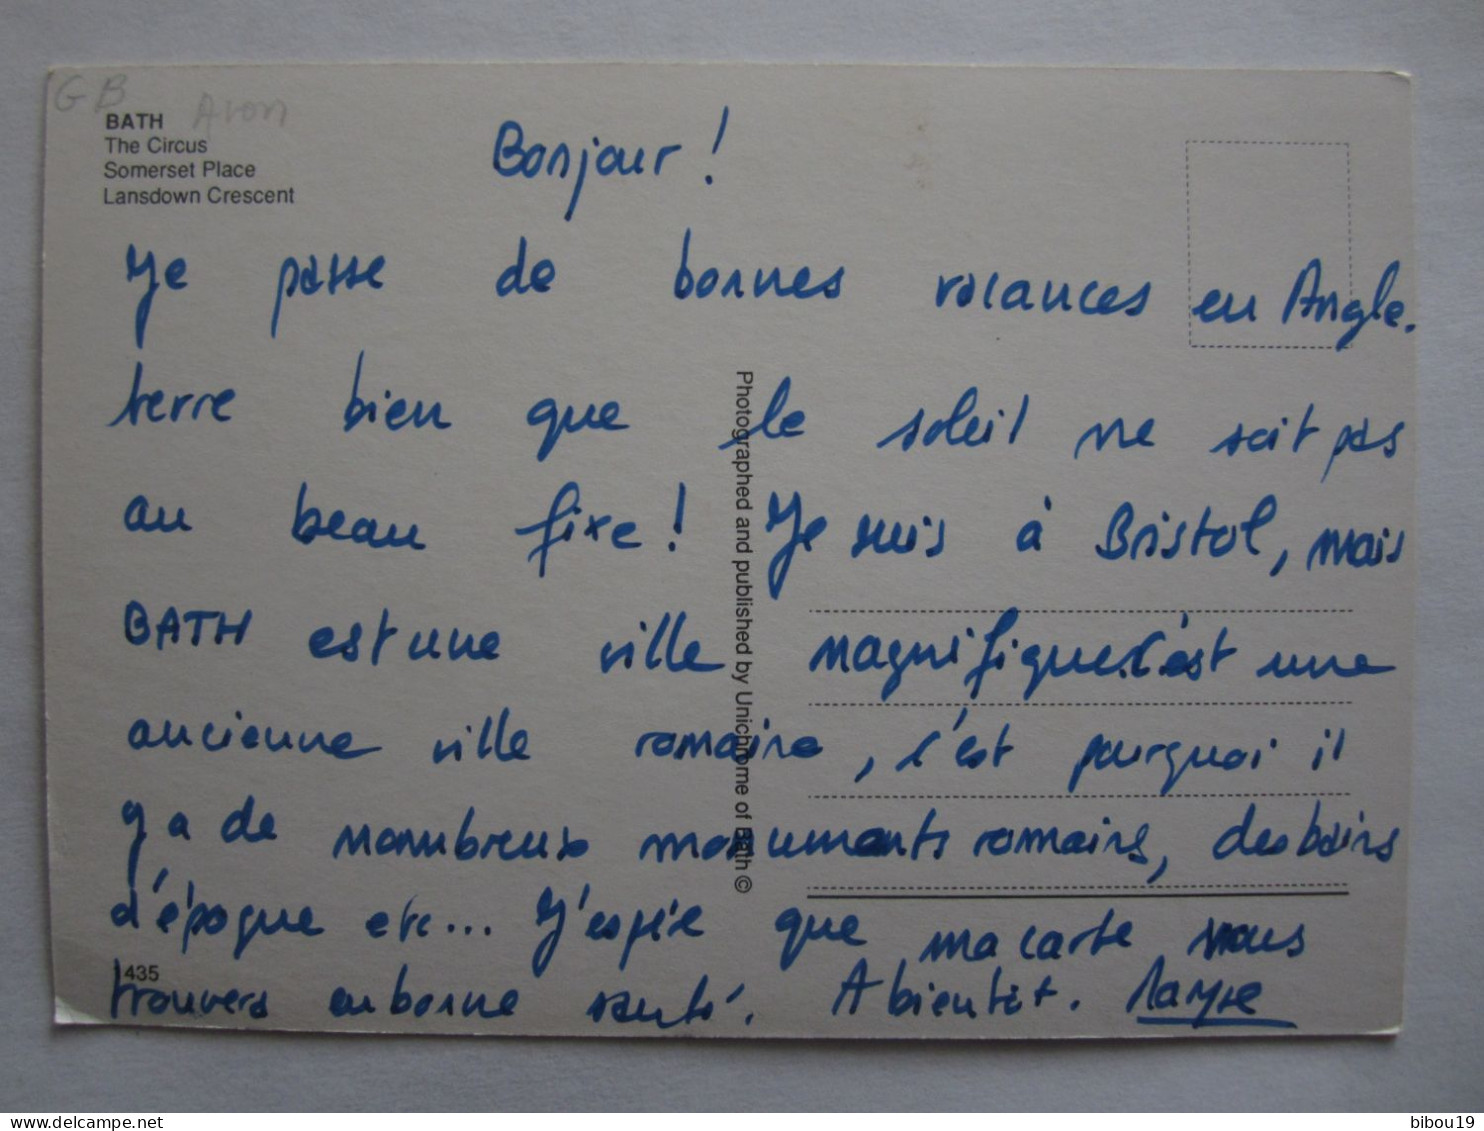 GB Avon
BATH
The Circus
Somerset Place
Lansdown Crescent
Bonjour !
Je passe de bonnes vacances en Angle-
terre bien que le soleil ne soit pas
au beau fixe ! Je suis à Bristol, mais
BATH est une ville magnifique. C'est une
ancienne ville romaine, c'est pourquoi il
y a de nombreux monuments romains, des bains
d'époque etc... J'espère que ma carte vous
trouvera en bonne santé. A bientôt.
435
Photographed and published by Unichrome of Bath ©
delcampe.net
bibou19